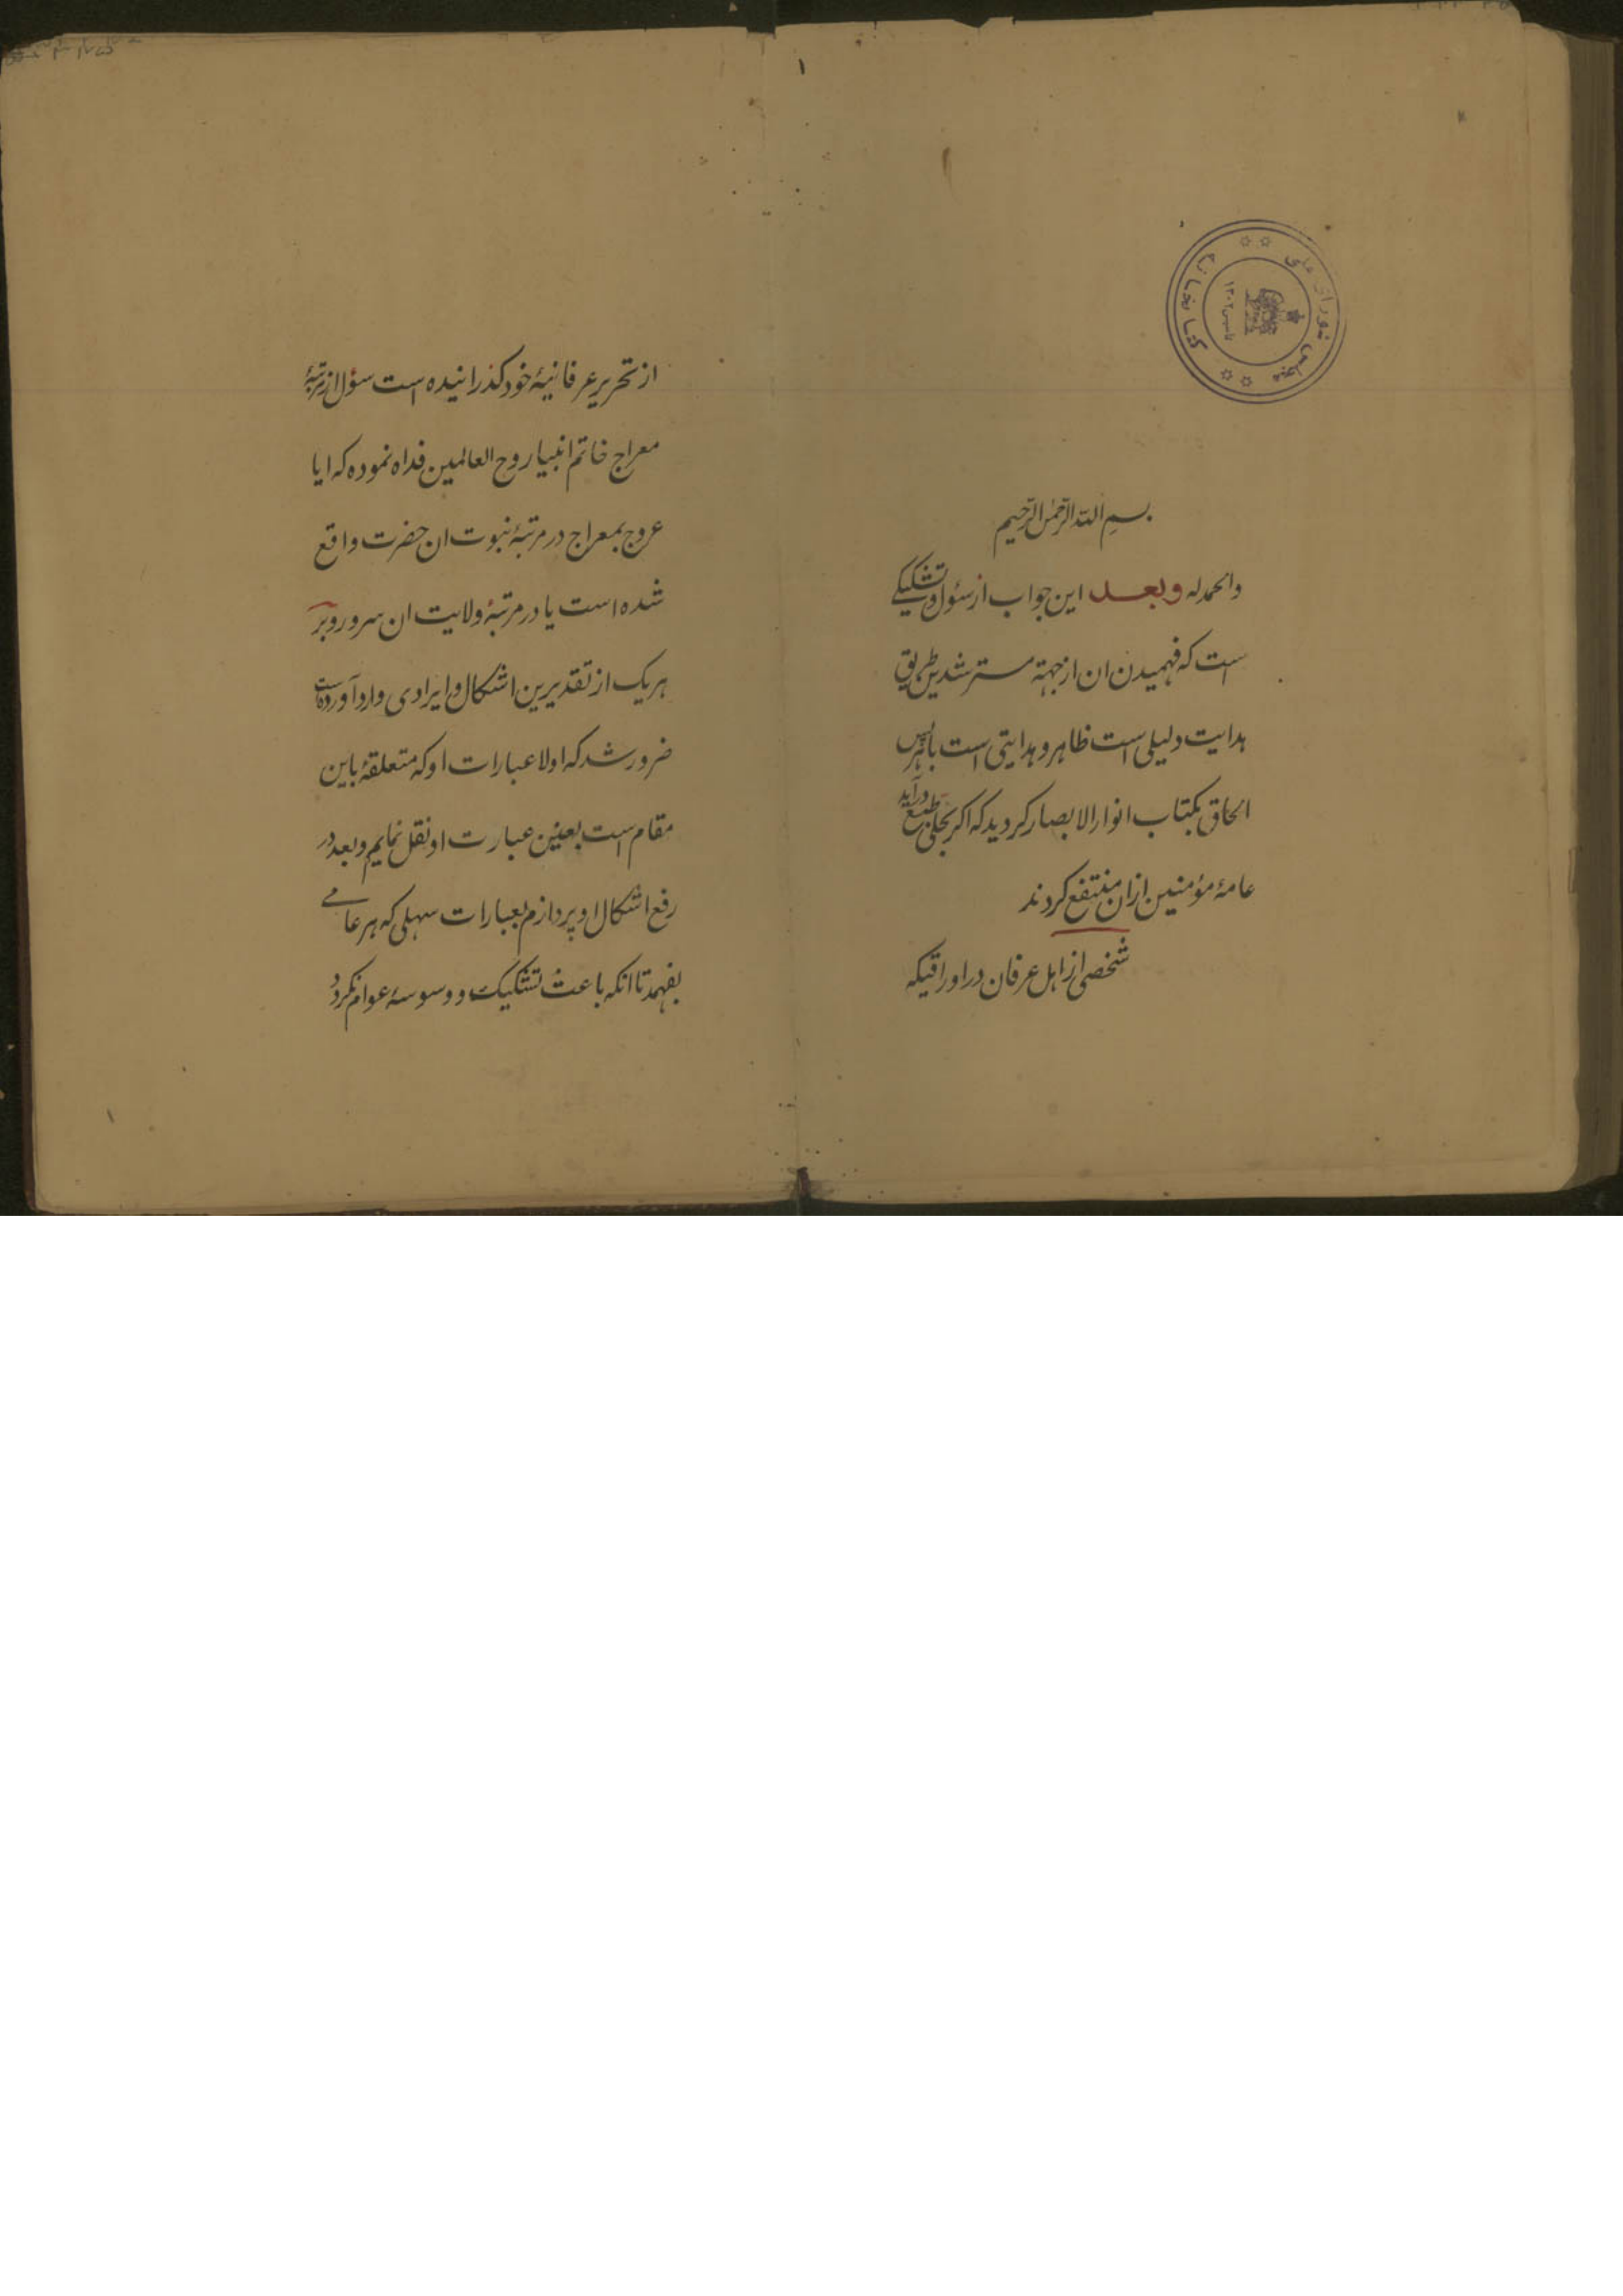 بسم الله الرحمن الرحیم
والحمدله وبعد این جواب از سئول و تشکیکی
است که فهمیدن ان از جهة مسترشدین طریق
هدایت دلیلی است ظاهر و هدایتی است باهر پس
الحاق بکتاب انوار الابصار کردید که اکر بحلی طبع درآید
عامهٔ مؤمنین ازان منتفع کردند
شخصی از اهل عرفان در اوراقیکه
از تحریر عرفانیهٔ خود کذرانیده است سؤل از مرتبهٔ
معراج خاتم انبیا روح العالمین فداه نموده که ایا
عروج بمعراج در مرتبهٔ نبوت ان حضرت واقع
شده است یا در مرتبهٔ ولایت ان سرور و بر
هریک از تقدیرین اشکال و ایرادی وارد آورده است
ضرور شد که اولا عبارات او که متعلقهٔ باین
مقام است بعین عبارت او نقل نمایم و بعد در
رفع اشکال او پردازم بعبارات سهلی که هر عامی
بفهمد تا انکه باعث تشکیک و وسوسهٔ عوام نکردد
کتابخانه مجلس شورای ملی
۱۳۰۲
۱